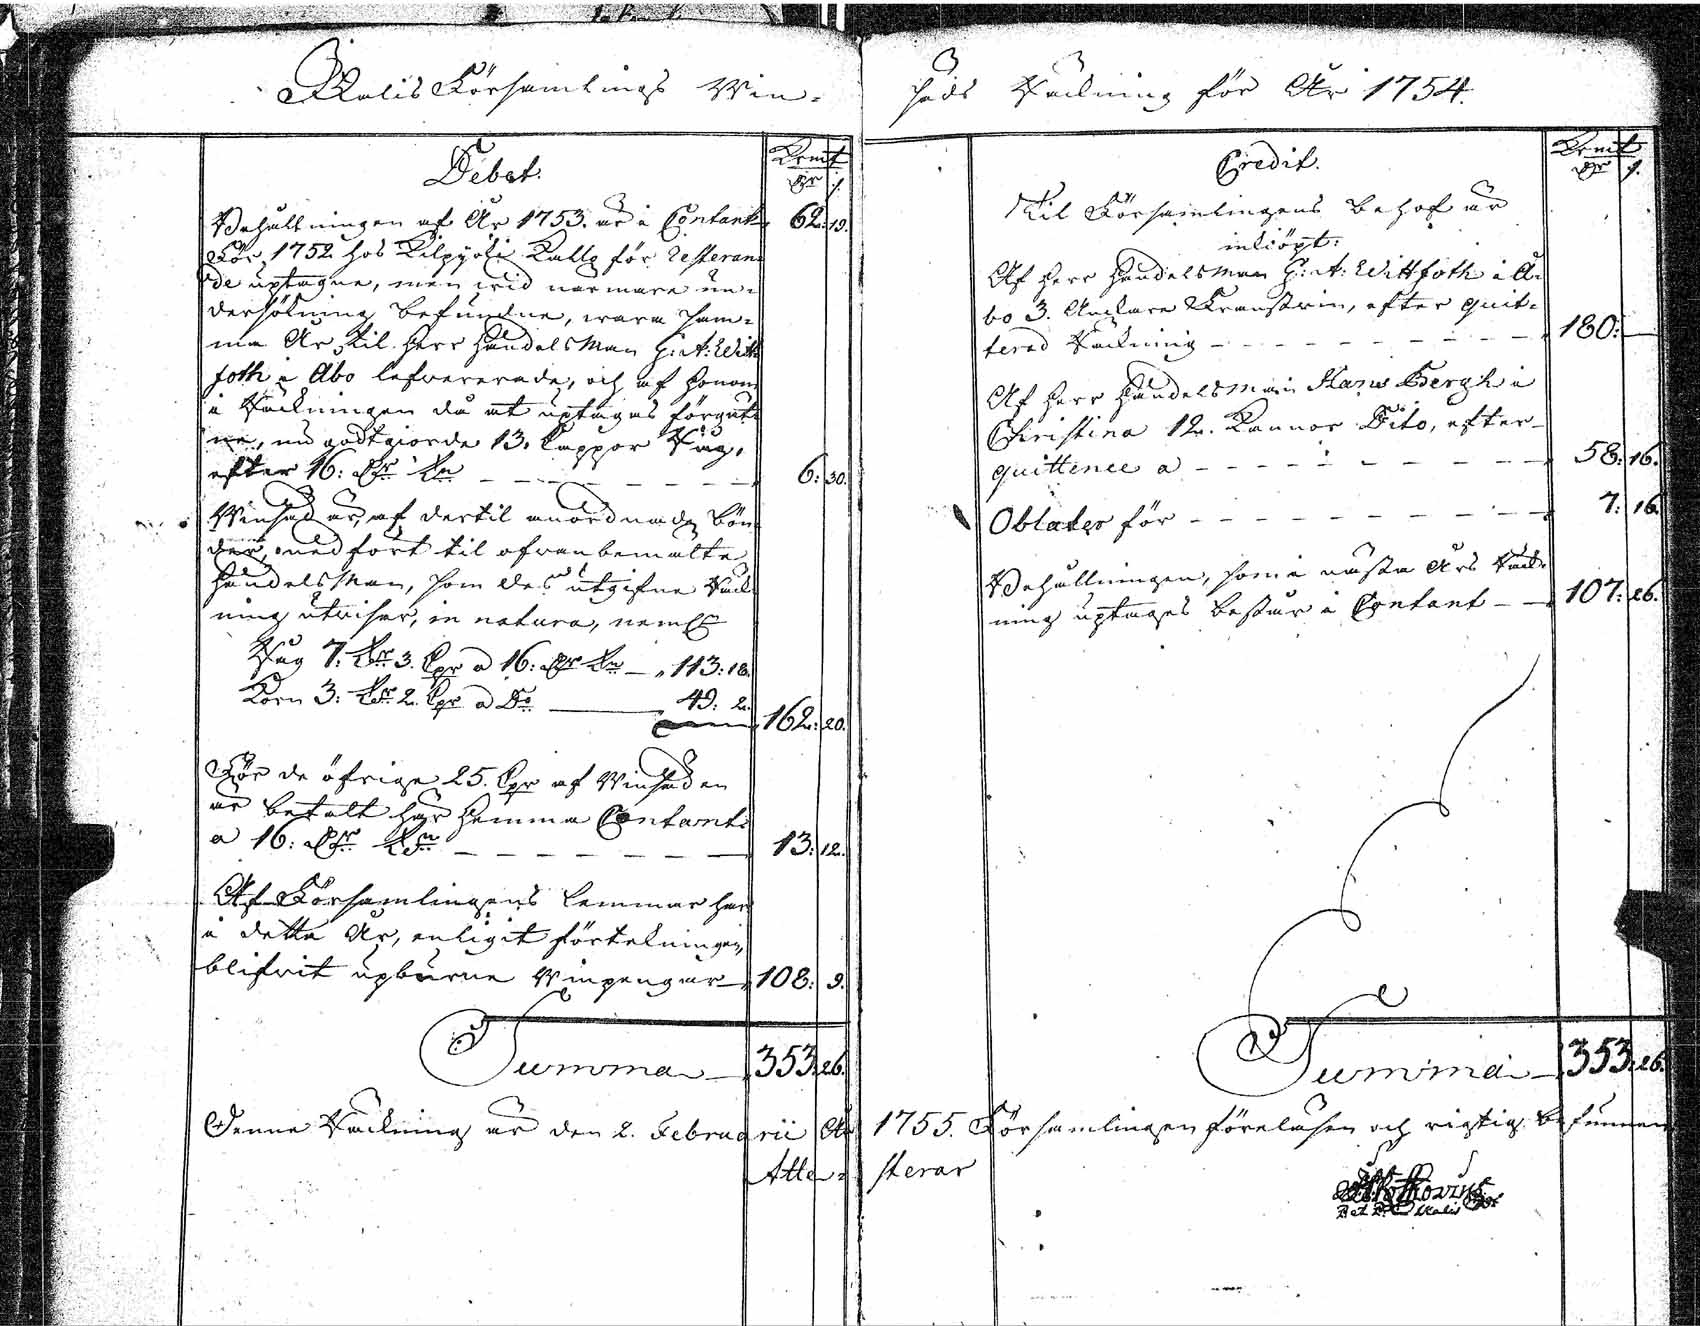 Ikalis Församlings Win-
säds Räckning för År 1754.
Debet.
Kmt
Dr
Behållningen af År 1753. är i Contant 62: 19.
För 1752 hos Kilpijoki Kalle för resteran-
de uptagne, men wid närmare un-
dersökning befundne, wara sam-
ma År til Herr Handelsman G: A: Witt-
foth i Åbo lefwererade, och af honom
i Räckningen då at uptagas förgät-
ne, nu godtgiorde 13. kappor Råg,
efter 16: Dr Tn 6: 30.
Winsäd är, af dertil anordnade bön-
der, nedfört til ofvanbemälte
Handelsman, som des utgifne Räck-
ning utwisar, in natura, neml
Råg 7: Tr 3. kpr a 16: Dr Tn 113: 18.
Korn 3: Tr 2. kpr a Do 49: 2.
162: 20.
För de öfrige 25. kpr af Winsäden
är betalt här hemma Contant
a 16: Dr Tn 13: 12.
Af Församlingens lemmar har
i detta År, enligit förtekningen,
blifwit upburne Winpengar 108: 9.
Summa 353: 26.
Credit.
Kmt
Dr
Til Församlingens behof är
inkiöpt:
Af Herr Handelsman G: A: Wittfoth i Å-
bo 3. Anckare Franskwin, efter quit-
terad Räckning 180: —
Af Herr Handelsman Hans Bergh i
Christina 12. Kannor Dito, efter
quittence a 58: 16.
Oblater för 7: 16.
Behållningen, som i nästa Års Räck-
ning uptages består i Contant 107: 26.
Summa 353: 26.
Denne Räckning är den 2. Februarii År 1755. Församlingen föreläsen och rigtig befunnen
Atte- sterar